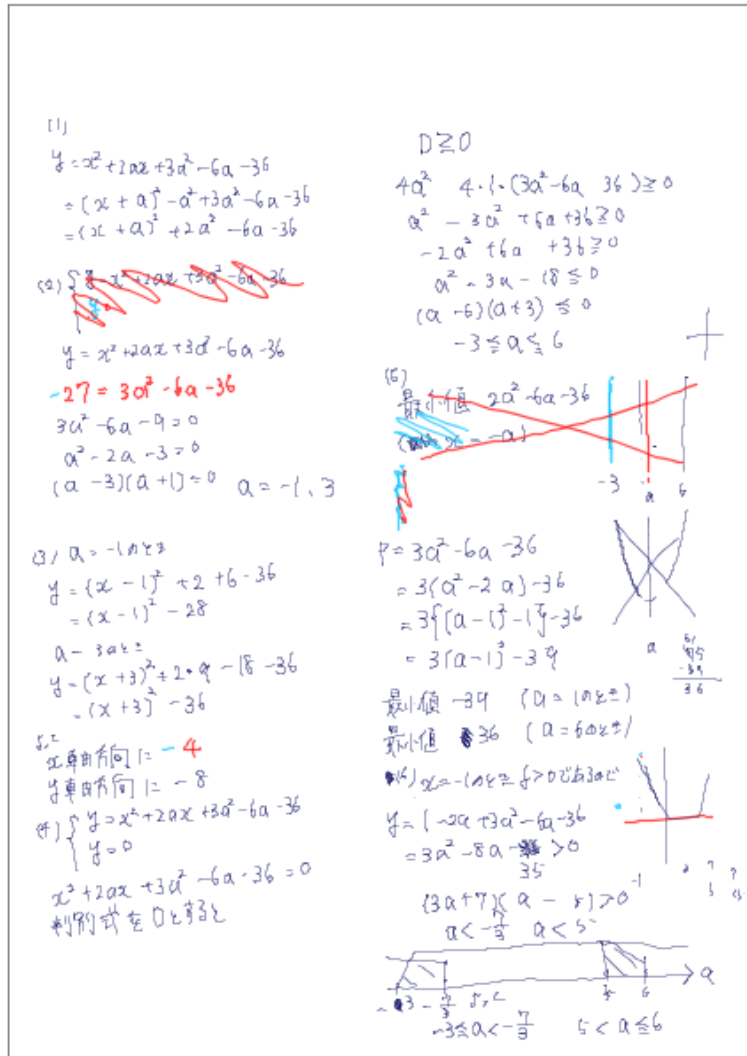 (1)
y=x²+2ax+3a²-6a-36
=(x+a)²-a²+3a²-6a-36
=(x+a)²+2a²-6a-36
(2)
y=x²+2ax+3a²-6a-36
-27=3a²-6a-36
3a²-6a-9=0
a²-2a-3=0
(a-3)(a+1)=0 a=-1,3
(3) a=-1のとき
y=(x-1)²+2+6-36
=(x-1)²-28
a=3のとき
y=(x+3)²+2・9-18-36
=(x+3)²-36
よって
x軸方向に-4
y軸方向に-8
(4) { y=x²+2ax+3a²-6a-36
y=0
x²+2ax+3a²-6a-36=0
判別式をDとすると
D≧0
4a² 4・1・(3a²-6a 36)≧0
a²-3a²+6a+36≧0
-2a²+6a+36≧0
a²-3a-18≦0
(a-6)(a+3)≦0
-3≦a≦6
(5)
最小値 2a²-6a-36
-3 a 6
P=3a²-6a-36
=3(a²-2a)-36
=3{(a-1)²-1}-36
=3(a-1)²-39
a
最小値 -39 (a=1のとき)
最小値 36 (a=6のとき)
(6) x=-1のとき y>0であるので
y=1-2a+3a²-6a-36
=3a²-8a-35>0
(3a+7)(a-5)>0
a<-7/3 a<5
-3 -7/3 5 6 a
よって
-3≦a<-7/3 5<a≦6